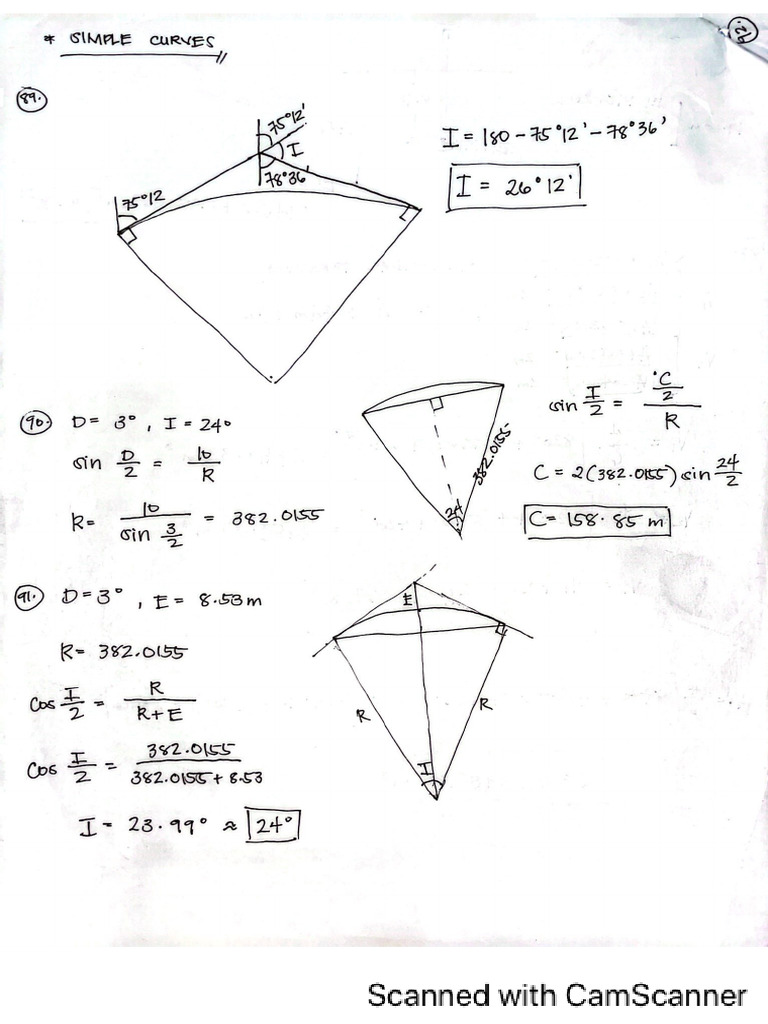 92.
* SIMPLE CURVES
89.
75°12'
I
78°36'
75°12
I = 180 - 75°12' - 78°36'
I = 26°12'
90. D = 3°, I = 24°
sin D/2 = 10/R
R = 10/sin 3/2 = 382.0155
382.0155
24
sin I/2 = C/2/R
C = 2(382.0155) sin 24/2
C = 158.85 m
91. D = 3°, E = 8.53 m
R = 382.0155
cos I/2 = R/R+E
cos I/2 = 382.0155/382.0155 + 8.53
I = 23.99° ≈ 24°
E
R
R
I
Scanned with CamScanner